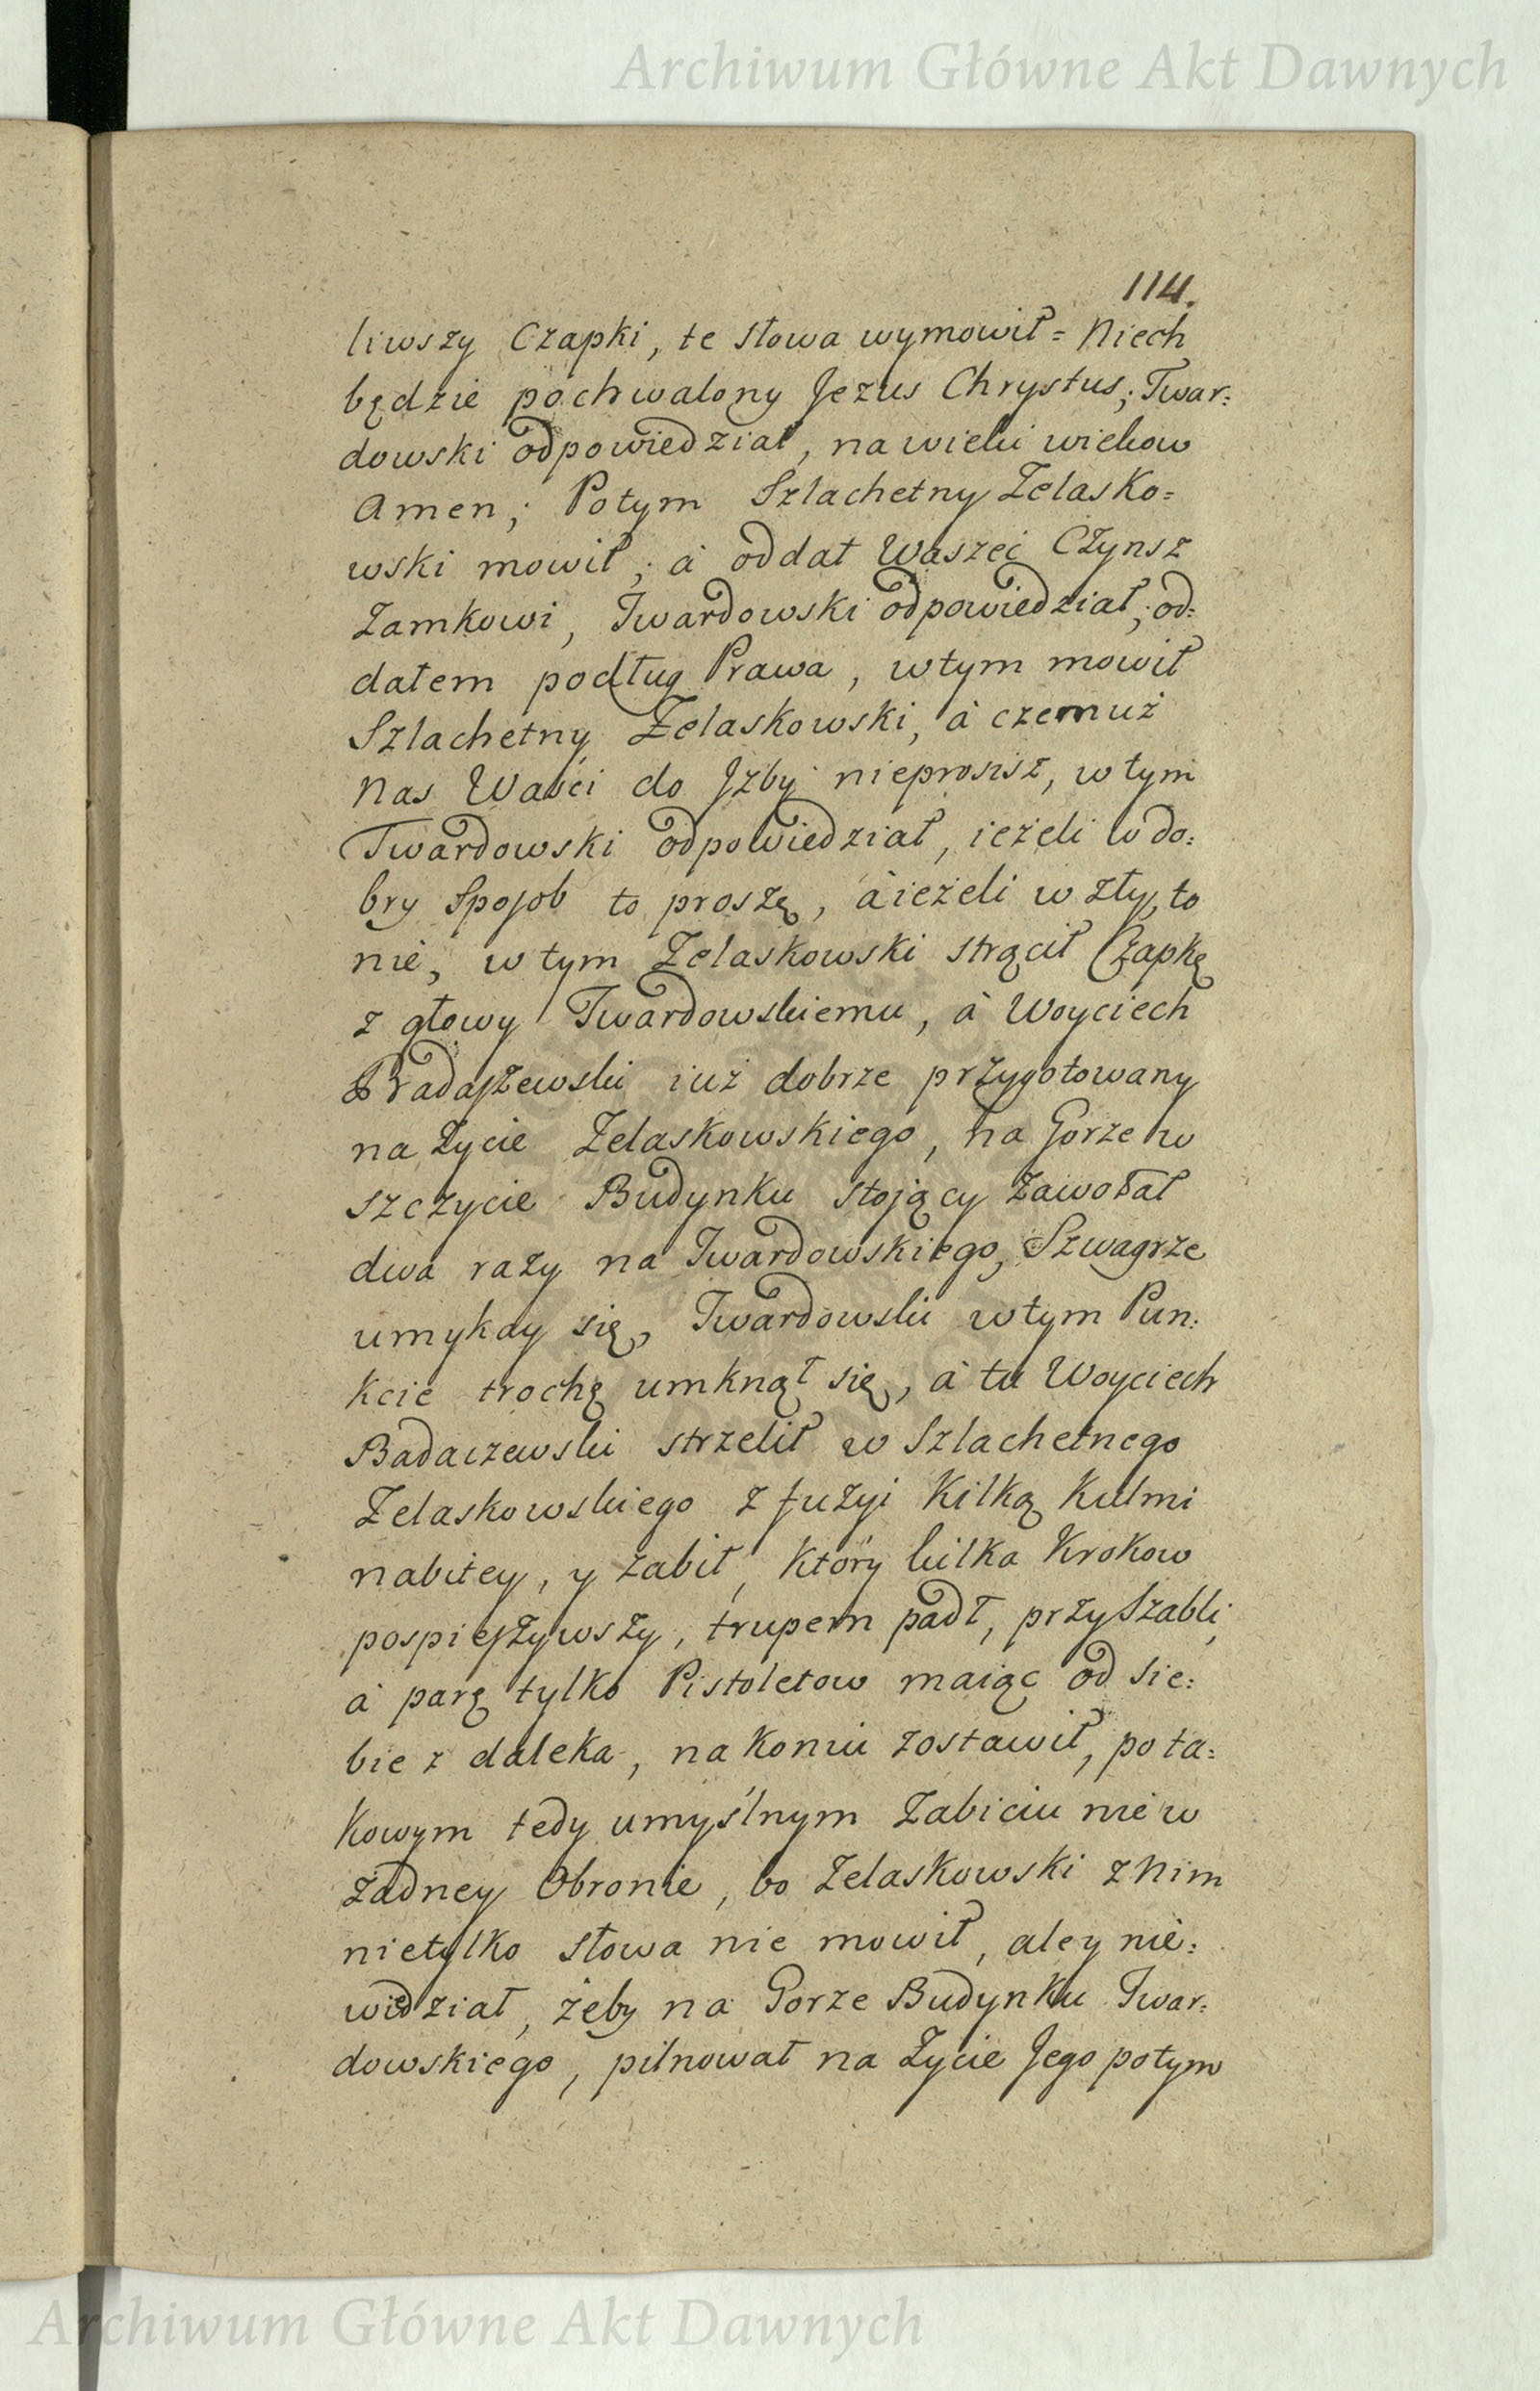 Archiwum Główne Akt Dawnych
114.
liwszy Czapki, te słowa wymowił = Niech
będzie pochwalony Jezus Chrystus; Twar:
dowski odpowiedział, na wieki wiekow
Amen; Potym Szlachetny Zelasko=
wski mowił; à oddał Waszeć Czynsz
Zamkowi, Twardowski odpowiedział; od:
dałem podług Prawa, wtym mowił
Szlachetny Żelaskowski, à czemuż
Nas Waści do Jzby nieprosisz, w tym
Twardowski odpowiedział, ieżeli w do:
bry Sposob to proszę, à ieżeli w zły, to
nie, w tym Żelaskowski strącił Czapkę
z głowy Twardowskiemu, à Woyciech
Badaszewski iuż dobrze przygotowany
na Życie Żelaskowskiego, na Gorze w
szczycie Budynku stojący zawołał
dwa razy na Twardowskiego, Szwagrze
umykay się, Twardowski wtym Pun:
kcie trochę umknął się, à tu Woyciech
Badaczewski strzelił w Szlachetnego
Żelaskowskiego z fuzyi kilką kulmi
nabitey, y zabił, ktory kilka krokow
pospieszywszy, trupem padł, przy Szabli,
à parę tylko Pistoletow maiąc od sie:
bie z daleka, na koniu zostawił, po ta:
kowym tedy umyślnym Zabiciu nie w
żadney Obronie, bo Zelaskowski z Nim
nietylko słowa nie mowił, ale y nie:
wiedział, żeby na Gorze Budynku Twar:
dowskiego, pilnował na Życie Jego potym
Archiwum Główne Akt Dawnych